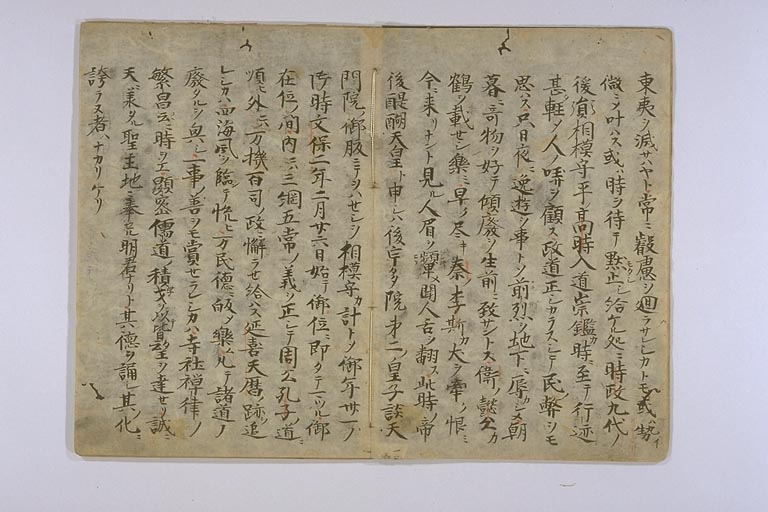 東夷ヲ滅サハヤト常ニ叡慮ヲ廻ラサレシカトモ或ハ勢
微ニシテ叶ハス或ハ時ヲ待テ黙止シ給ケル処ニ時政九代ノ
後胤相模守平ノ高時入道崇鑑カ時ニ至テ行迹
甚軽シテ人ノ哢ヲ顧ス政道正シカラスシテ民ノ弊ヲモ
思ハス只日夜ニ逸遊ヲ事トシテ前烈ヲ地下ニ辱カシメ朝
暮ニ奇物ヲ好テ傾廃ヲ生前ニ致サントス衛ノ懿公カ
鶴ヲ載セシ楽ミ早ク尽キ秦ノ李斯カ犬ヲ牽シ恨ミ
今ニ来リナント見ル人眉ヲ顰メ聞人舌ヲ翻ス此時ノ帝
後醍醐天皇ト申ハ後宇多院ノ第二ノ皇子談天
門院ノ御腹ニテヲハセシヲ相模守カ計トシテ御年卅一ノ
御時文保二年二月廿六日始テ御位ニ即タテマツル御
在位ノ間内ニハ三綱五常ノ義ヲ正シテ周公孔子ノ道ニ
順ヒ外ニハ万機百司ノ政ニ懈ラせ給ハス延喜天暦ノ跡ヲ追
レシカハ四海風ヲ臨テ悦ヒ万民徳ニ皈シテ楽ム凡テ諸道ノ
廃タルヲ興シ一事ノ善ヲモ賞せラレシカハ寺社禅律ノ
繁昌云ニ時ヲエ顕密儒道ノ積才望ヲ達セリ誠ニ
天ニ受タル聖主地ニ奉セル明君ナリト其徳ヲ誦シ其化ニ
誇ラヌ者ハナカリケリ